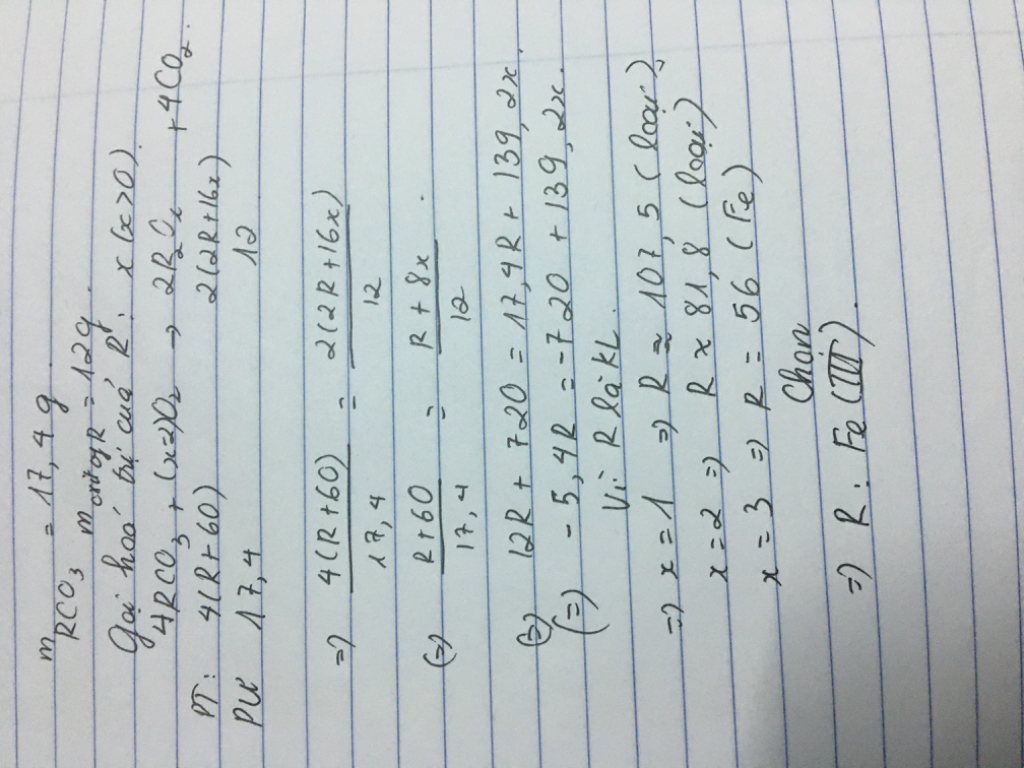 m RCO₃ = 17,4 g
m oxit of R = 12g.
Gọi hoá trị của R: x (x>0).
4RCO₃ + (x-2)O₂ → 2R₂Oₓ + 4CO₂.
PT: 4(R+60) 2(2R+16x)
PƯ 17,4 12
=> 4(R+60)/17,4 = 2(2R+16x)/12
(=) R+60/17,4 = R+8x/12.
(=) 12R + 720 = 17,4R + 139,2x.
(=) -5,4R = -720 + 139,2x.
Vì R là KL.
=> x=1 => R ≈ 107,5 (loại)
x=2 => R ≈ 81,8 (loại)
x=3 => R = 56 (Fe)
Chọn
=> R: Fe (III).